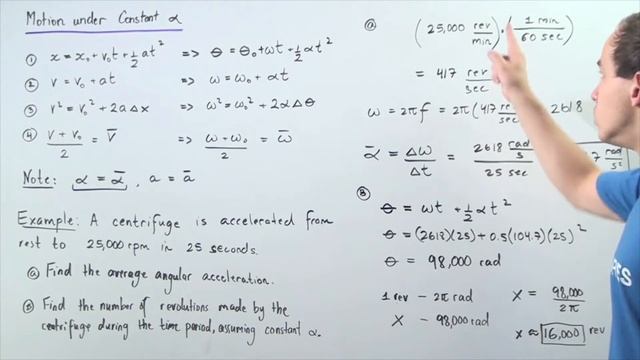 Motion under Constant α
① x = x₀ + v₀t + ½at² => θ = θ₀ + ωt + ½αt²
② v = v₀ + at => ω = ω₀ + αt
③ v² = v₀² + 2aΔx => ω² = ω₀² + 2αΔθ
④ (v + v₀)/2 = v̄ => (ω - ω₀)/2 = ω̄
Note: α = ᾱ, a = ā
Example: A centrifuge is accelerated from
rest to 25,000 rpm in 25 seconds.
ⓐ Find the average angular acceleration.
ⓑ Find the number of revolutions made by the
centrifuge during the time period, assuming constant α.
ⓐ (25,000 rev/min) · (1 min/60 sec)
= 417 rev/sec
ω = 2πf = 2π(417 2618
ᾱ = Δω/Δt = 2618 rad/s / 25 sec 7 rad/s
Ⓑ θ = ωt + ½αt²
θ = (2618)(25) + 0.5(104.7)(25)²
θ = 98,000 rad
1 rev - 2π rad
X - 98,000 rad
X = 98,000/2π
X ≈ 16,000 rev